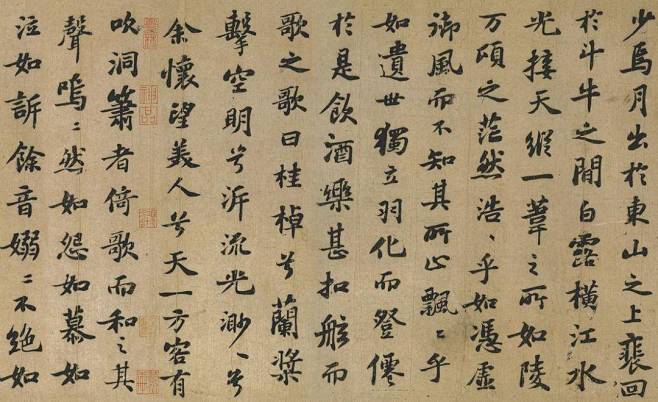 少焉月出於東山之上裴回
於斗牛之間白露橫江水
光接天縱一葦之所如陵
万頃之茫然浩〻乎如馮虛
御風而不知其所止飄〻乎
如遺世獨立羽化而登僊
於是飲酒樂甚扣舷而
歌之歌曰桂棹兮蘭槳
擊空明兮泝流光渺〻兮
余懷望美人兮天一方客有
吹洞簫者倚歌而和之其
聲嗚〻然如怨如慕如
泣如訴餘音嫋〻不絕如